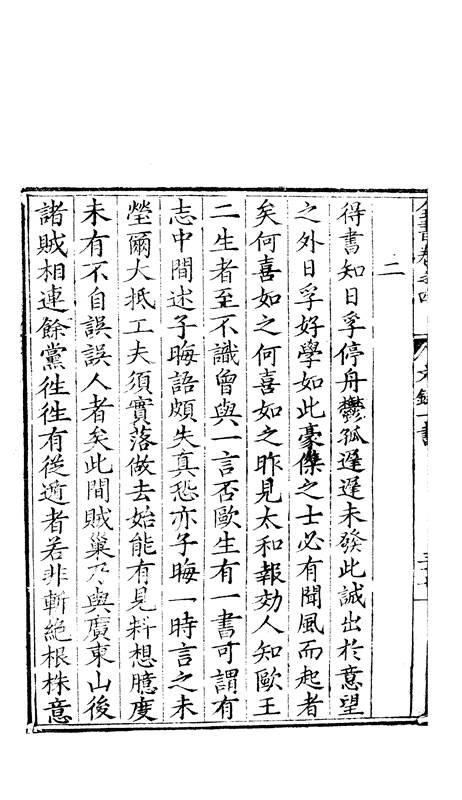 二
得書知日孚停舟鬱孤遲遲未發此誠出於意望
之外日孚好學如此豪傑之士必有聞風而起者
矣何喜如之何喜如之昨見太和報効人知歐王
二生者至不識曾與一言否歐生有一書可謂有
志中間述子晦語頗失真恐亦子晦一時言之未
瑩爾大抵工夫須實落做去始能有見料想臆度
未有不自誤誤人者矣此間賊巢乃與廣東山後
諸賊相連餘黨徃徃有從遁者若非斬絶根株意